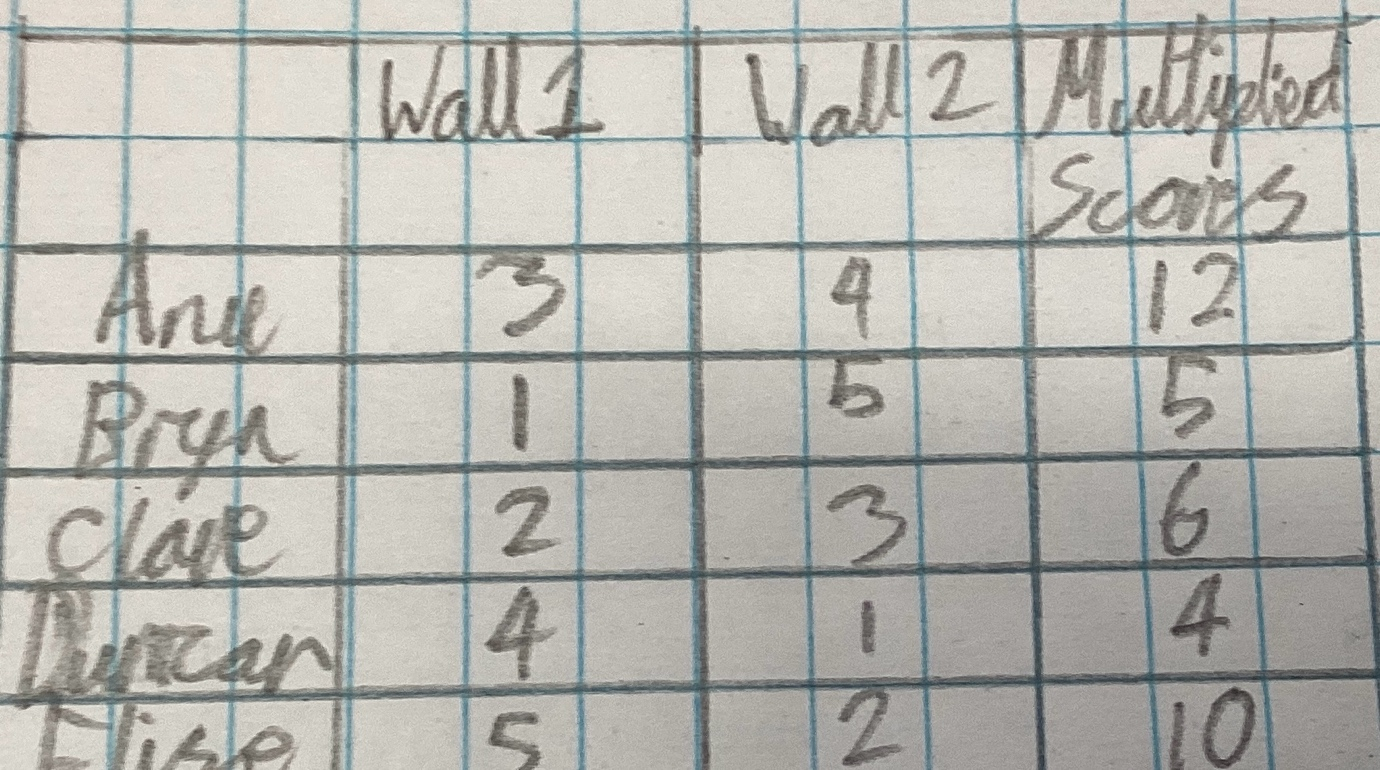 Wall 1 Wall 2 Multiplied
Scores
Anne 3 4 12
Bryn 1 5 5
Clare 2 3 6
Duncan 4 1 4
Elise 5 2 10